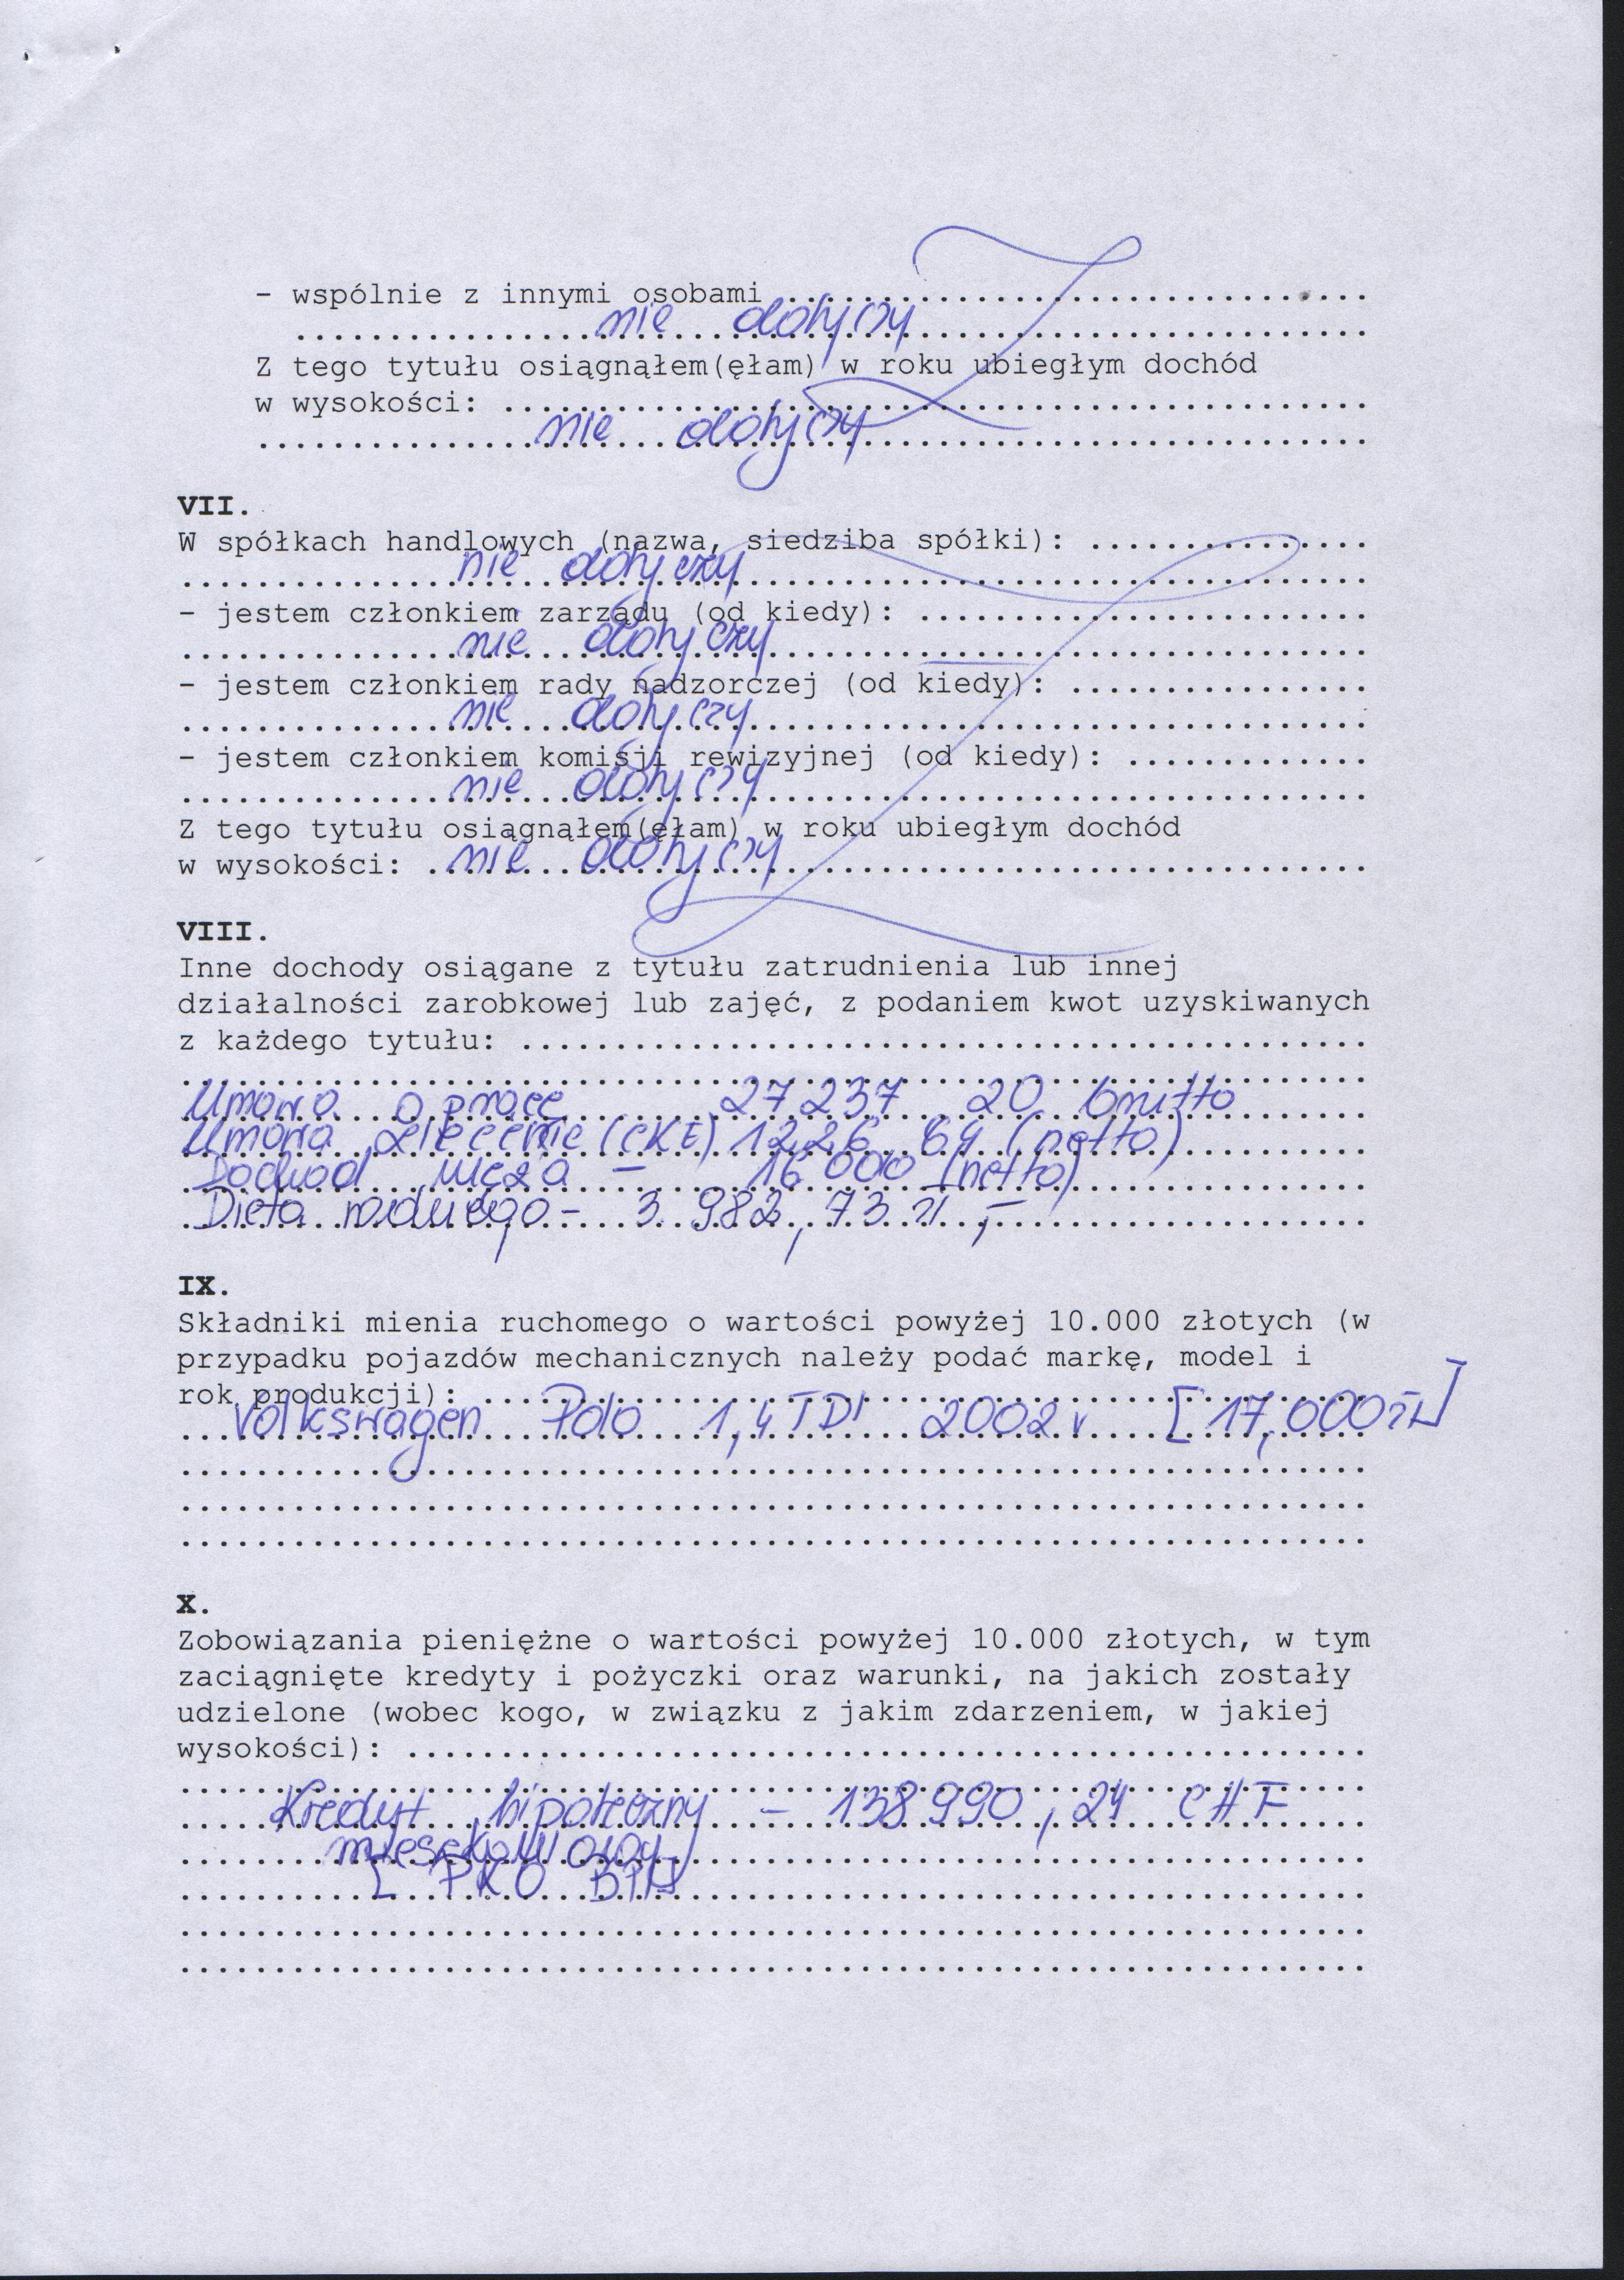 - wspólnie z innymi osobami ..........................
nie dotyczy
Z tego tytułu osiągnąłem(ęłam) w roku ubiegłym dochód
w wysokości: ..........................
nie dotyczy
VII.
W spółkach handlowych (nazwa, siedziba spółki): ...............
nie dotyczy
- jestem członkiem zarządu (od kiedy): ........................
nie dotyczy
- jestem członkiem rady nadzorczej (od kiedy): ................
nie dotyczy
- jestem członkiem komisji rewizyjnej (od kiedy): .............
nie dotyczy
Z tego tytułu osiągnąłem(ęłam) w roku ubiegłym dochód
w wysokości: nie dotyczy
VIII.
Inne dochody osiągane z tytułu zatrudnienia lub innej
działalności zarobkowej lub zajęć, z podaniem kwot uzyskiwanych
z każdego tytułu: .............................................
Umowa o pracę 27 237 20 brutto
Umowa zlecenie (CKE) 1226 64 (netto)
Dochód męża - 16 000 (netto)
Dieta radnego - 3 982,73 zł,-
IX.
Składniki mienia ruchomego o wartości powyżej 10.000 złotych (w
przypadku pojazdów mechanicznych należy podać markę, model i
rok produkcji): ...............................................
Volkswagen Polo 1,4 TDI 2002 r [17,000 zł]
X.
Zobowiązania pieniężne o wartości powyżej 10.000 złotych, w tym
zaciągnięte kredyty i pożyczki oraz warunki, na jakich zostały
udzielone (wobec kogo, w związku z jakim zdarzeniem, w jakiej
wysokości): ...................................................
Kredyt hipoteczny - 138 990,24 CHF
mieszkaniowy
[PKO BP]